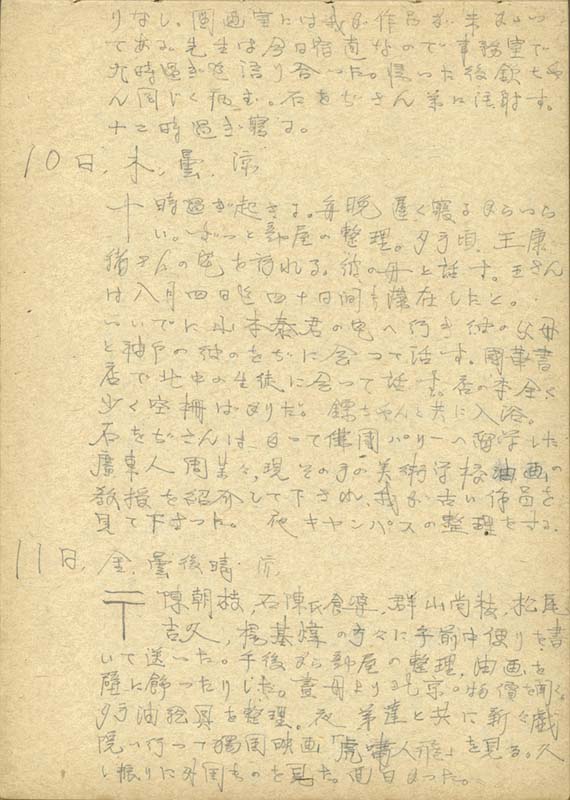 りなし。図画室には我が作品が
てある。先生は今日宿直なので事務室で
九時過ぎ迄語り合った。帰った後欽ちゃ
ん同じく病む。石をぢさん弟に注射す。
十二時過ぎ寝る。
10日、木、曇、涼
十時過ぎ起きる。毎晩遅く寝るからいけな
い。ずっと部屋の整理。夕方頃、王康
さんの宅を訪れる。彼の母と話す。王さん
は八月四日迄四十日間も滞在したと。
ついでに山本泰君の宅へ行き彼の父母
と神戸の彼のをぢに会って話す。国華書
店で北中の生徒に会って話す。店の本全く
少く空棚ばかりだ。 ちゃんと共に入浴。
石をぢさんは、曾って佛国パリーへ留学した
廣東人周某々、現 その子の美術学校油画の
教授を紹介して下され、我が古い作品を
見て下さった。 夜キャンバスの整理をする。
11日、金、曇後晴、涼
〒 陳朝枝、石陳氏 、群山尚 、松尾
吉久、楊基煒の方々に午前中便りを書
いて送った。午後から部屋の整理、油画を
壁に飾ったりした。 母より北京の物價を聞く。
夕方油絵具を整理。夜 弟達と共に新々戯
院へ行って獨国映画「虎嘯人飛」を見る。久
し振りに外国ものを見た。面白かった。